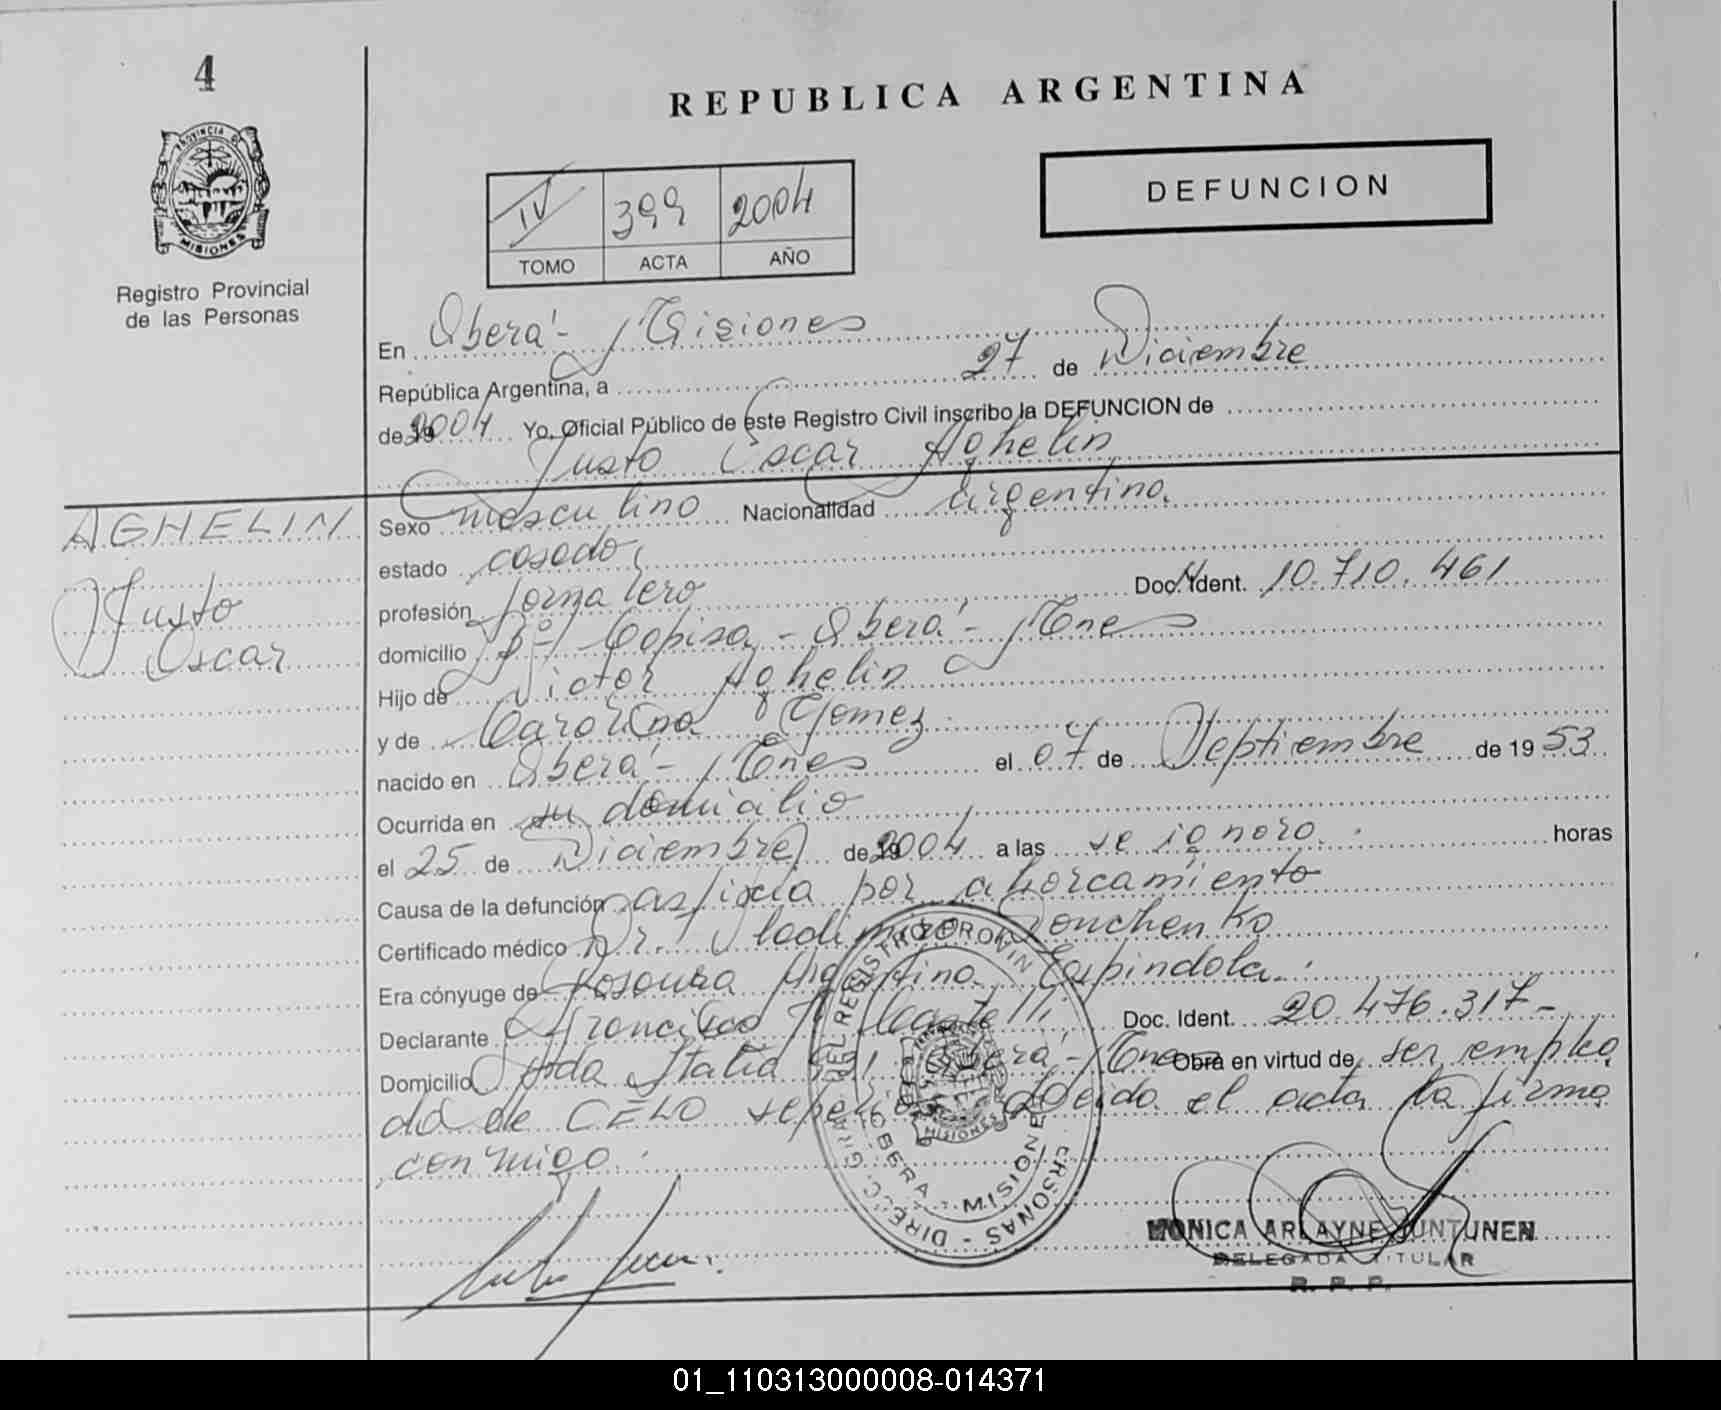 4
PROVINCIA DE
MISIONES
Registro Provincial
de las Personas
REPUBLICA ARGENTINA
DEFUNCION
IV 399 2004
TOMO ACTA AÑO
En Oberá - Misiones
República Argentina, a 27 de Diciembre
de 2004 Yo, Oficial Público de este Registro Civil inscribo la DEFUNCION de
Justo Oscar Aghelin
AGHELIN
Justo
Oscar
Sexo masculino Nacionalidad argentina
estado casado
profesión Jornalero Doc. Ident. 10.710.461
domicilio Bº Copisa - Oberá - Mnes
Hijo de Victor Aghelin
y de Carolina Gomez
nacido en Oberá - Mnes el 07 de Septiembre de 1953
Ocurrida en su domicilio
el 25 de Diciembre de 2004 a las se ignora horas
Causa de la defunción asfixia por ahorcamiento
Certificado médico Dr. Bonchenko
Era cónyuge de Rosaura Argentina Espindola
Declarante Francisco Doc. Ident. 20.476.317 -
Domicilio Avda Italia Oberá - Mnes Obra en virtud de ser emplea
do de CELO sepelios Leida el acta la firma
conmigo.
DIRECC. GRAL. DEL REGISTRO PROVIN ERSONAS -
MISIONES
OBERA - MISIONES
MONICA ARLAYNE JUNTUNEN
DELEGADA TITULAR
R. P. P.
01_110313000008-014371